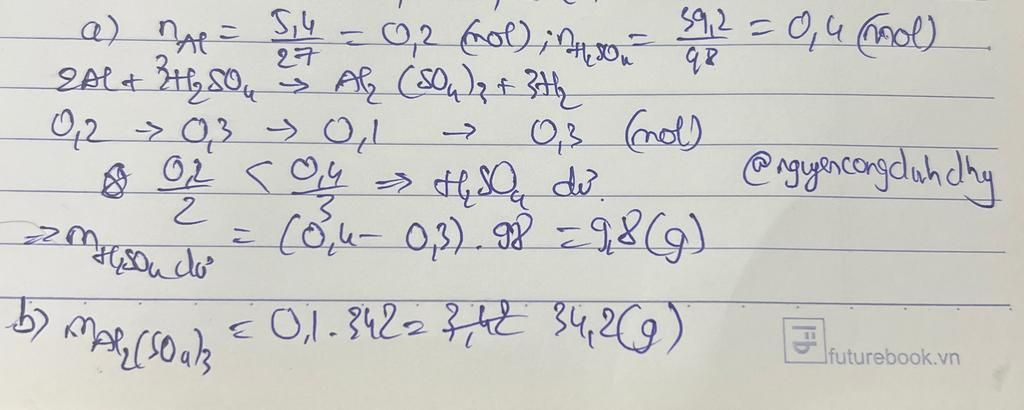 a) nAl = 5,4/27 = 0,2 (mol); nH2SO4 = 39,2/98 = 0,4 (mol)
2Al + 3H2SO4 → Al2(SO4)3 + 3H2
0,2 → 0,3 → 0,1 → 0,3 (mol)
0,2/2 < 0,4/3 => H2SO4 dư.
@nguyencongduhdhy
=> mH2SO4 dư = (0,4 - 0,3).98 = 9,8(g)
b) mAl2(SO4)3 = 0,1.342 = 3,42 34,2(g)
futurebook.vn